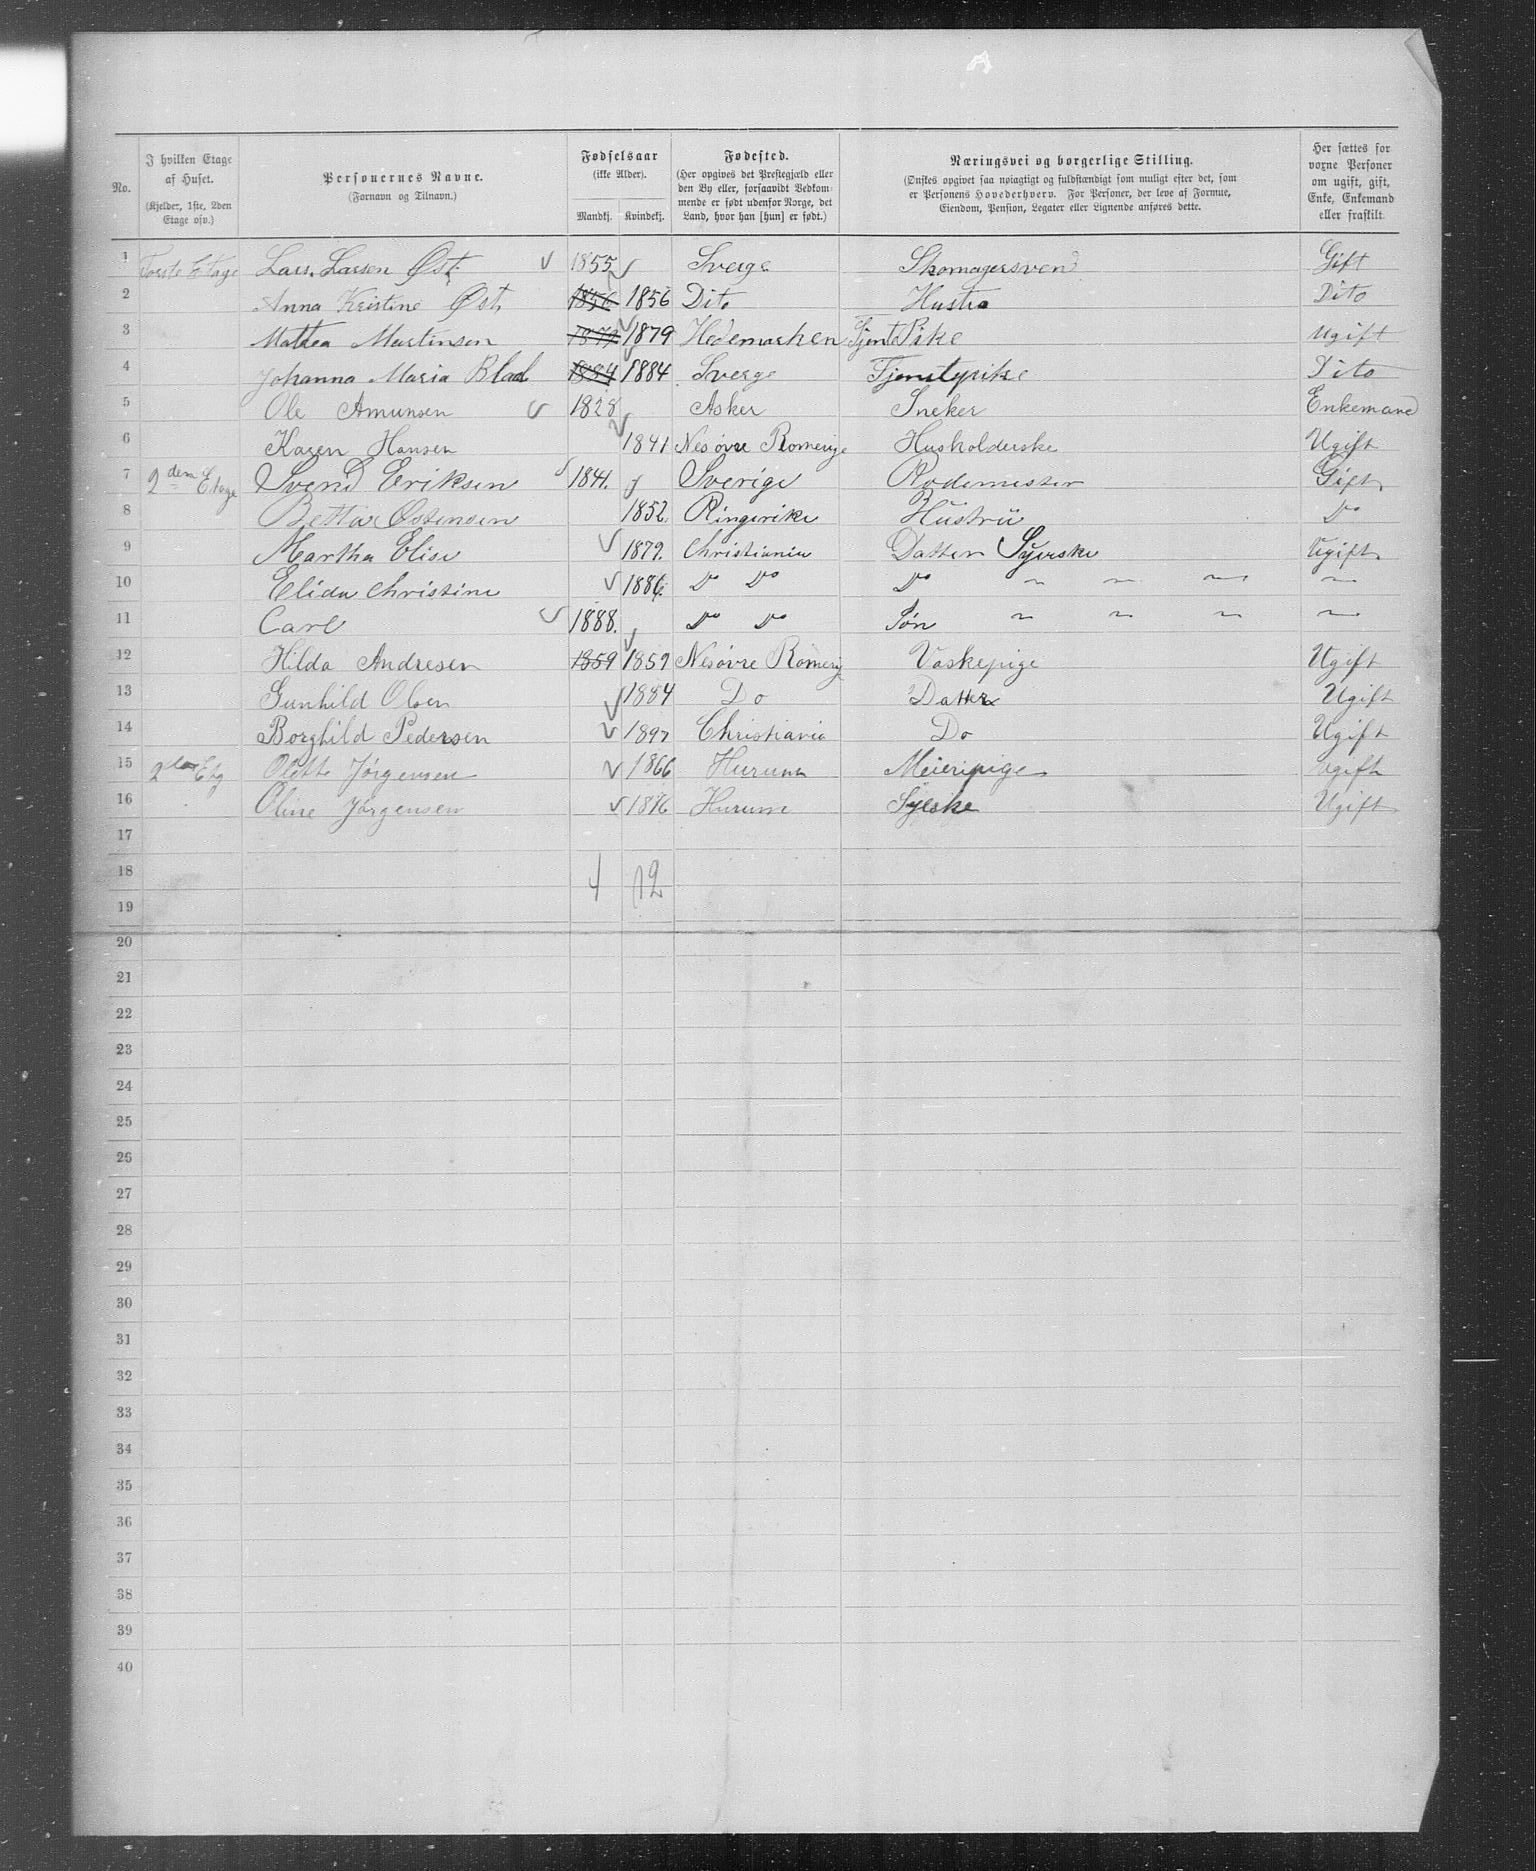 No.
I hvilken Etage af Huset.
(Kjelder, 1ste, 2den Etage osv.)
Personernes Navne.
(Fornavn og Tilnavn.)
Fødselsaar
(ikke Alder).
Mandkj. Kvindekj.
Fødested.
(Her opgives det Prestegjæld eller den By eller, forsaavidt Vedkommende er født udenfor Norge, det Land, hvor han [hun] er født.)
Næringsvei og borgerlige Stilling.
(Ønskes opgivet saa nøiagtigt og fuldstændigt som muligt efter det, som er Personens Hovederhverv. For Personer, der leve af Formue, Eiendom, Pension, Legater eller Lignende anføres dette.
Her sættes for voxne Personer om ugift, gift, Enke, Enkemand eller fraskilt.
1 Første Etage Lars Larsen Øst 1855 Sverge Skomagersvend Gift
2 Anna Kristine Øst 1856 1856 Dito Hustro Dito
3 Mathea Martinsen 1879 1879 Hedemarken Tjente Pike Ugift
4 Johanna Maria Blad 1884 1884 Sverge Tjenstepike Dito
5 Ole Amunsen 1828 Asker Sneker Enkemand
6 Karen Hansen 1841 Nes øvre Romerige Husholderske Ugift
7 2den Etage Svend Eriksen 1841. Sverige Rodemester Gift
8 Betta Østensen 1852. Ringerike Hustrü Do
9 Martha Elise 1879. Christiania Datter Syerske Ugift
10 Elida Christine 1886. Do Do Do " " " "
11 Carl 1888. Do Do Søn " " " "
12 Hilda Andresen 1859 1859 Nes øvre Romerig Vaskepige Ugift
13 Gunhild Olsen 1884 Do Datter Ugift
14 Borghild Pedersen 1897 Christiania Do Ugift
15 2den Etg Olette Jørgensen 1866 Hurum Meieripige Ugift
16 Oline Jørgensen 1876 Hurum Syeske Ugift
17
18 4 12
19
20
21
22
23
24
25
26
27
28
29
30
31
32
33
34
35
36
37
38
39
40